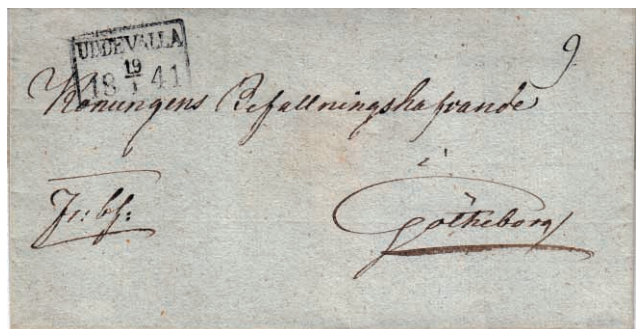 UDDEVALLA
19
18 1 41
9.
Konungens Befallningshafvande
i
Götheborg
Fr: bf: